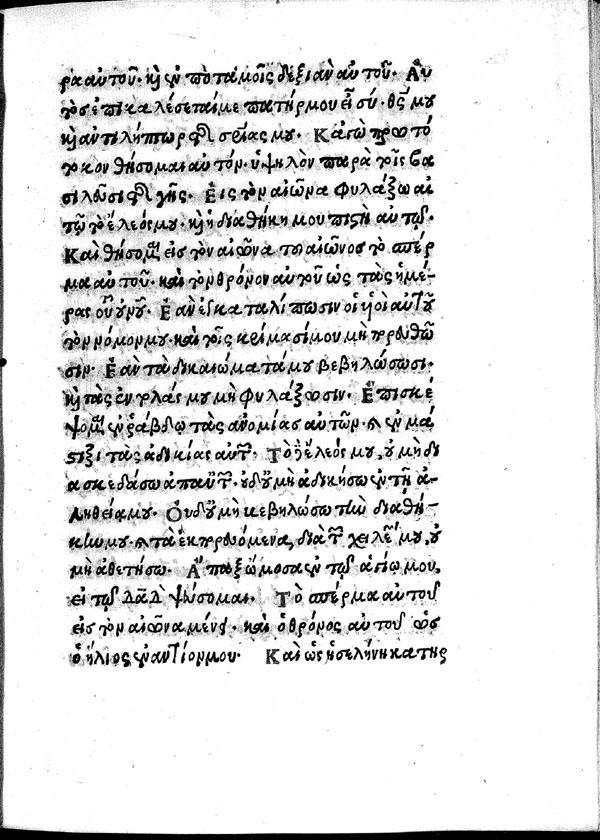 ρα αὐτοῦ· κὶ ἐν ποταμοῖς δεξιὰν αὐτοῦ· Αὐ
τὸς ἐπικαλέσεταί με πατήρ μου εἶ σύ· θς μου
κὶ ἀντιλήπτωρ τῆς σρίας μου· Κἀγὼ πρωτό
τοκον θήσομαι αὐτόν· ὑψηλὸν παρὰ τοῖς βα
σιλεῦσι τῆς γῆς· Εἰς τὸν αἰῶνα φυλάξω αὐ
τῷ τὸ ἔλεός μου· κὶ ἡ διαθήκη μου πιστὴ αὐτῷ·
Καὶ θήσομαι εἰς τὸν αἰῶνα τοῦ αἰῶνος τὸ σπέρ
μα αὐτοῦ· καὶ τὸν θρόνον αὐτοῦ ὡς τὰς ἡμέ-
ρας οὐνοῦ· Ἐὰν ἐγκαταλίπωσιν οἱ υἱοὶ αὐτοῦ
τὸν νόμον μου· καὶ τοῖς κρίμασί μου μὴ πορευθῶ
σιν· Ἐὰν τὰ δικαιώματά μου βεβηλώσωσι·
κὶ τὰς ἐντολάς μου μὴ φυλάξωσιν· Ἐπισκέ
ψομαι ἐν ῥάβδῳ τὰς ἀνομίας αὐτῶν· κὶ ἐν μά
στιξι τὰς ἀδικίας αὐτῶν· Τὸ δὲ ἔλεός μου, οὐ μὴ δι
ασκεδάσω ἀπ' αὐτῶν· οὐδ' οὐ μὴ ἀδικήσω ἐν τῇ ἀ-
ληθείᾳ μου· Οὐδ' οὐ μὴ βεβηλώσω τὴν διαθή-
κην μου· κὶ τὰ ἐκπορευόμενα, διὰ τῶν χειλέων μου, οὐ
μὴ ἀθετήσω· Ἅπαξ ὤμοσα ἐν τῷ ἁγίῳ μου,
εἰ τῷ Δᾱδ ψεύσομαι· Τὸ σπέρμα αὐτοῦ
εἰς τὸν αἰῶνα μένει· καὶ ὁ θρόνος αὐτοῦ ὡς
ὁ ἥλιος ἐναντίον μου· Καὶ ὡς ἡ σελήνη κατης